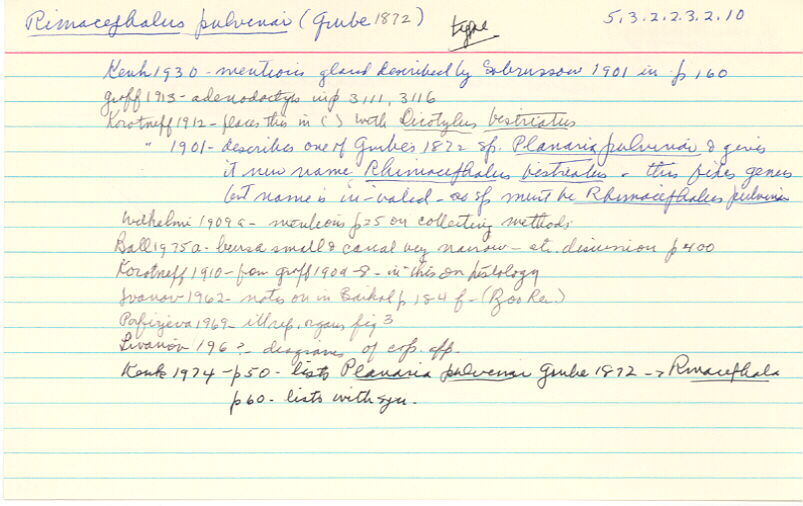 Rimacephalus pulvinar (Grube 1872) type 5.3.2.2.3.2.10
Kenk 1930 - mentions gland described by Sabussow 1901 in p 160
Graff 1913 - adenodactyls in p 3111, 3116
Korotneff 1912 - places this in ( ) with Dicotylus bistriatus
" 1901 - describes one of Grubes 1872 sp. Planaria pulvinar & gives
it new name Rhimacephalus bistriatus - this fixes genus
but name is in-valid - as sp must be Rhimacephalus pulvinar
Wilhelmi 1909a - mentions p 25 on collecting methods
Ball 1975a - bursa small & canal very narrow - etc. discussion p 400
Korotneff 1910 - from Graff 1904-8 - in this on histology
Ivanov 1962 - notes on in Baikal p 184 f - (Zoo Rec.)
Porfirjeva 1969 - ill rep. organs fig 3
Livanov 196? - diagrams of cop. app.
Kenk 1974 - p 50 - lists Planaria pulvinar Grube 1872 → Rimacephala
p 60 - lists with syn.